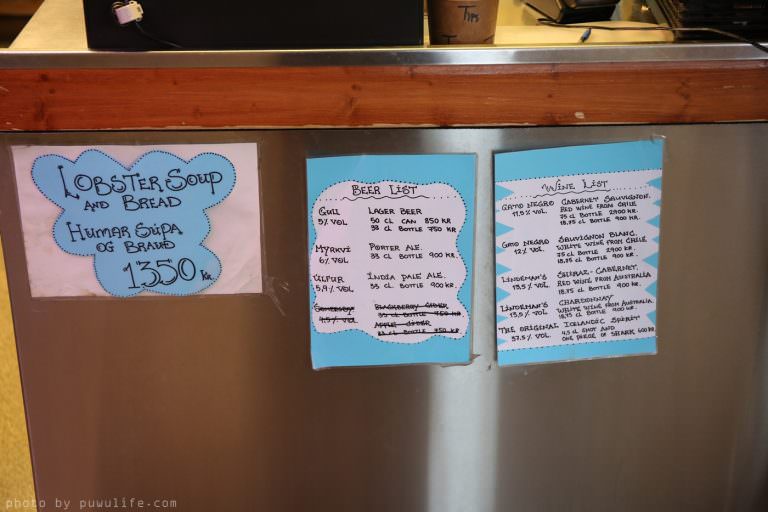 Tips
Lobster Soup
and Bread
Humar Súpa
og Brauð
1350 kr.
Beer List
Gull Lager Beer
5% vol 50 cl can 850 kr
33 cl bottle 750 kr
Myrkvi Porter Ale.
6% vol 33 cl bottle 900 kr.
Úlfur India Pale Ale.
5,9% vol 33 cl bottle 900 kr.
Somersby Blackberry Cider
4,5% vol 33 cl bottle 950 kr
Apple Cider
33 cl bottle 950 kr
Wine List
Gato Negro Cabernet Sauvignon.
Red wine from Chile
75 cl bottle 2900 kr.
18,75 cl bottle 900 kr.
Gato Negro Sauvignon Blanc.
12% vol. White wine from Chile
75 cl bottle 2900 kr.
18,75 cl bottle 900 kr.
Lindeman's Shiraz-Cabernet.
13,5% vol. Red wine from Australia
18,75 cl bottle 900 kr.
Lindeman's Chardonnay
13,5% vol. White wine from Australia
18,75 cl bottle 900 kr.
The Original Icelandic Spirit
37.5% vol. 4,5 cl shot and
one piece of shark 600 kr.
photo by puwulife.com